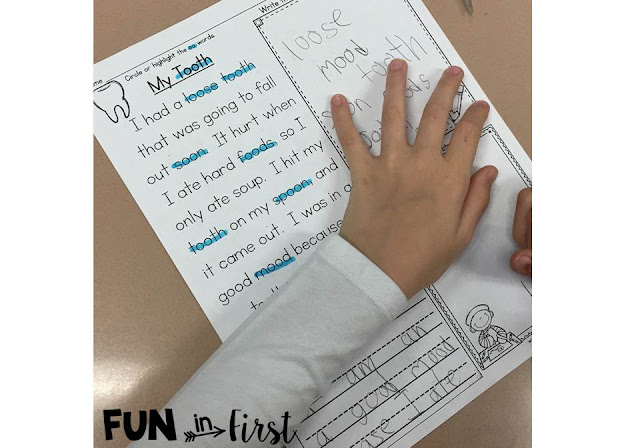 Circle or highlight the oo words.
My Tooth
I had a loose tooth
that was going to fall
out soon. It hurt when
I ate hard foods, so I
only ate soup. I hit my
tooth on my spoon, and
it came out. I was in a
good mood because
Write
loose
mood
tooth
am an
a good mood
I ate
FUN in First